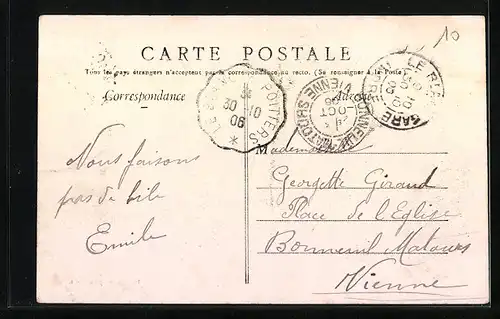 10
CARTE POSTALE
Tous les pays étrangers n'acceptent pas la correspondance au recto. (Se renseigner à la Poste)
Correspondance
Adresse
POITIERS
30 10
06
BONNEUIL MATOURS
VIENNE
OCT
LE BLANC
GARE
Nous faisons
pas de bile
Emile
Mademoiselle
Georgette Giraud
Place de l'Eglise
Bonneuil Matours
Vienne